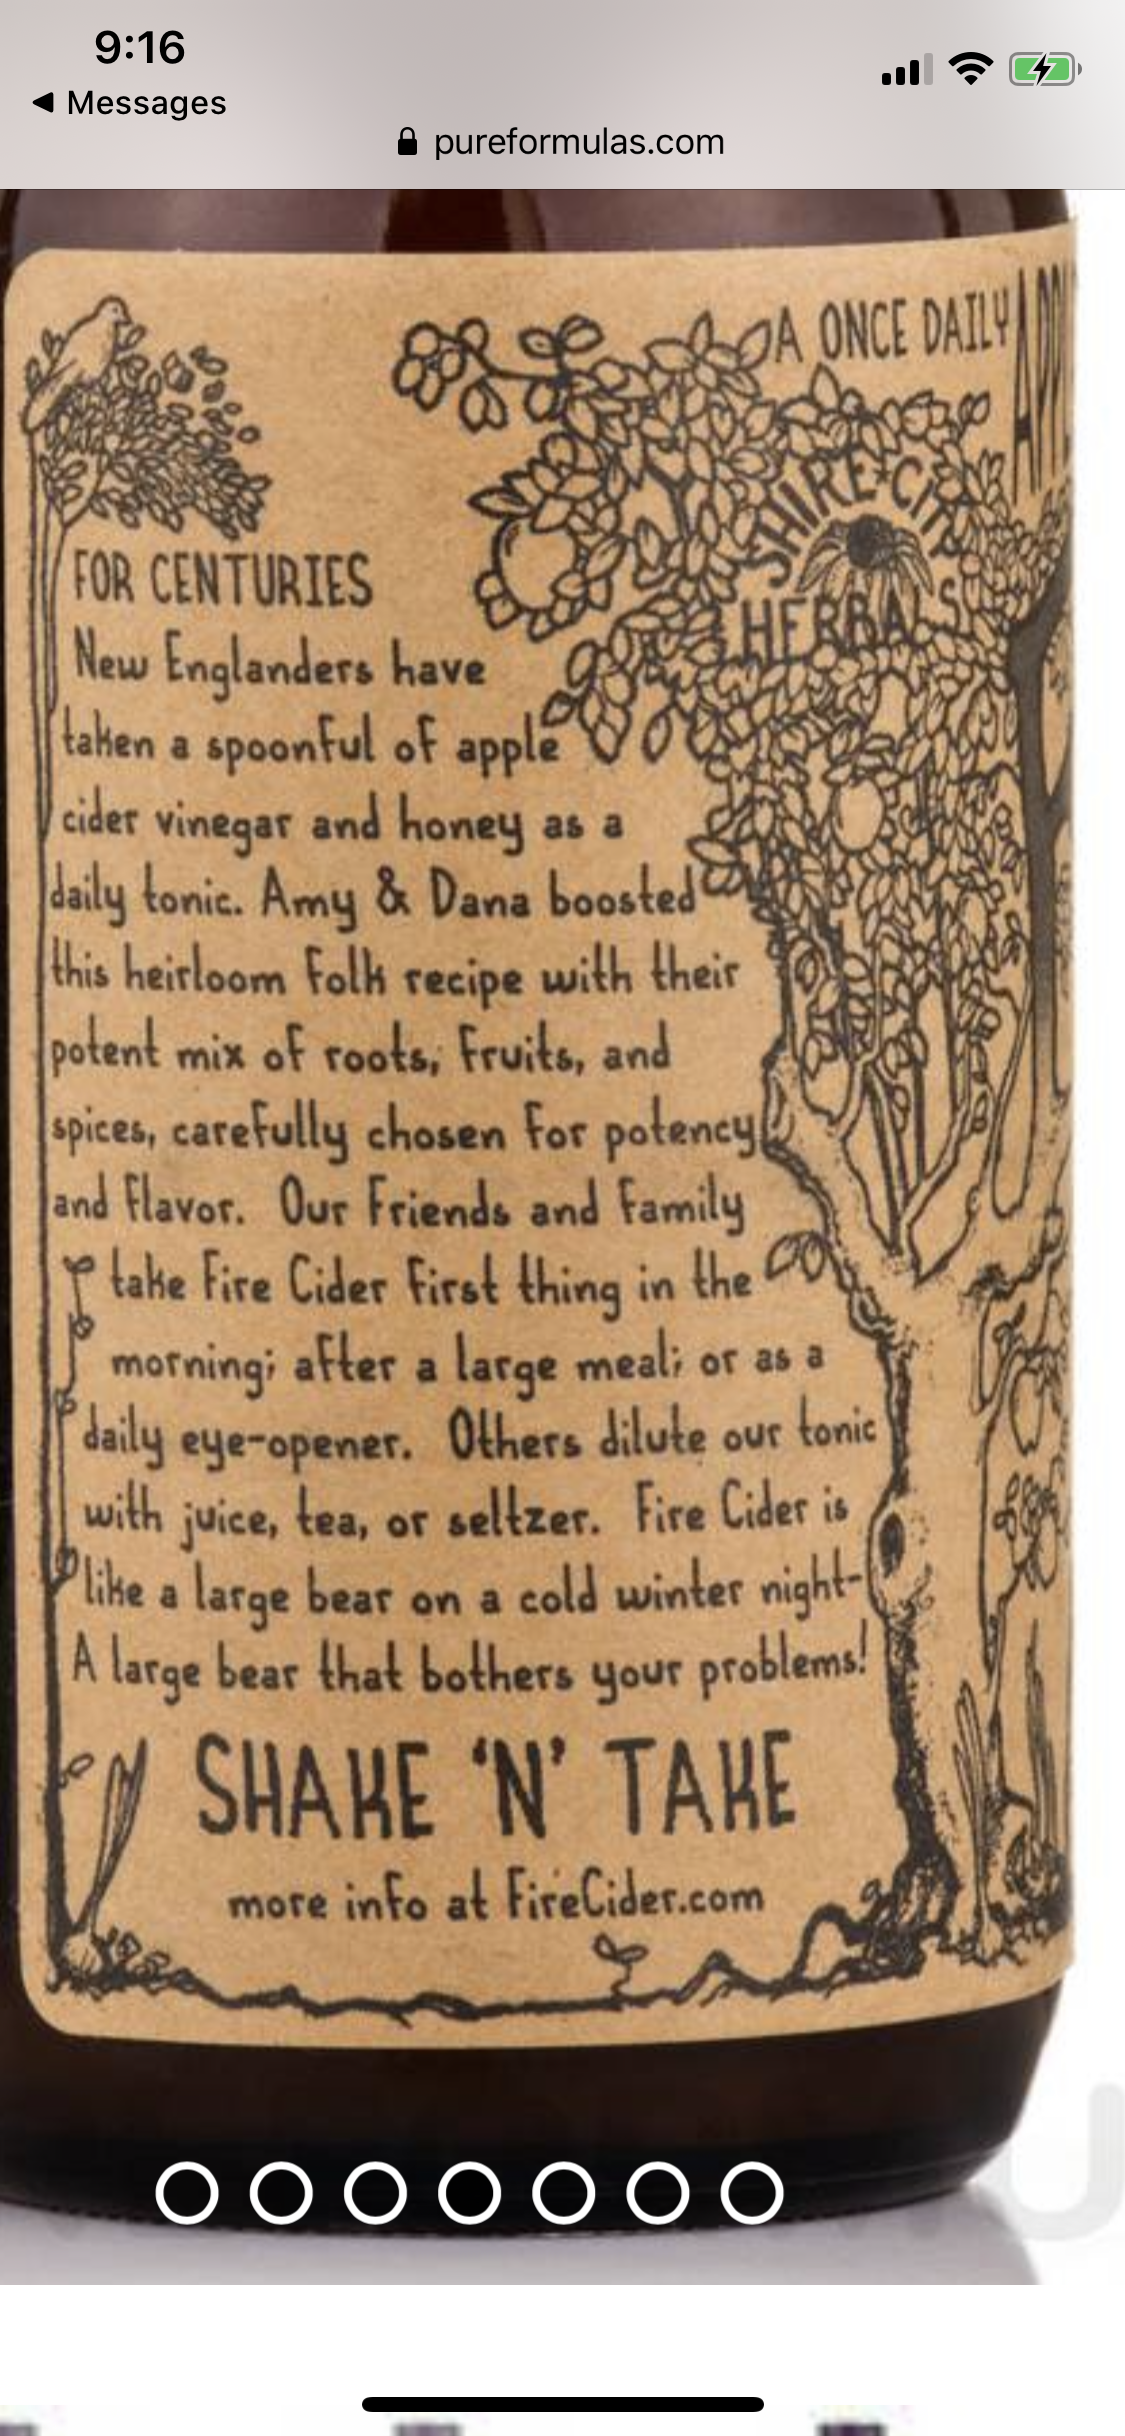 9:16
Messages
pureformulas.com
A ONCE DAILY
SHIRE CITY
HERBALS
FOR CENTURIES
New Englanders have
taken a spoonful of apple
cider vinegar and honey as a
daily tonic. Amy & Dana boosted
this heirloom folk recipe with their
potent mix of roots, fruits, and
spices, carefully chosen for potency
and flavor. Our friends and family
take Fire Cider first thing in the
morning; after a large meal; or as a
daily eye-opener. Others dilute our tonic
with juice, tea, or seltzer. Fire Cider is
like a large bear on a cold winter night-
A large bear that bothers your problems!
SHAKE 'N' TAKE
more info at FireCider.com